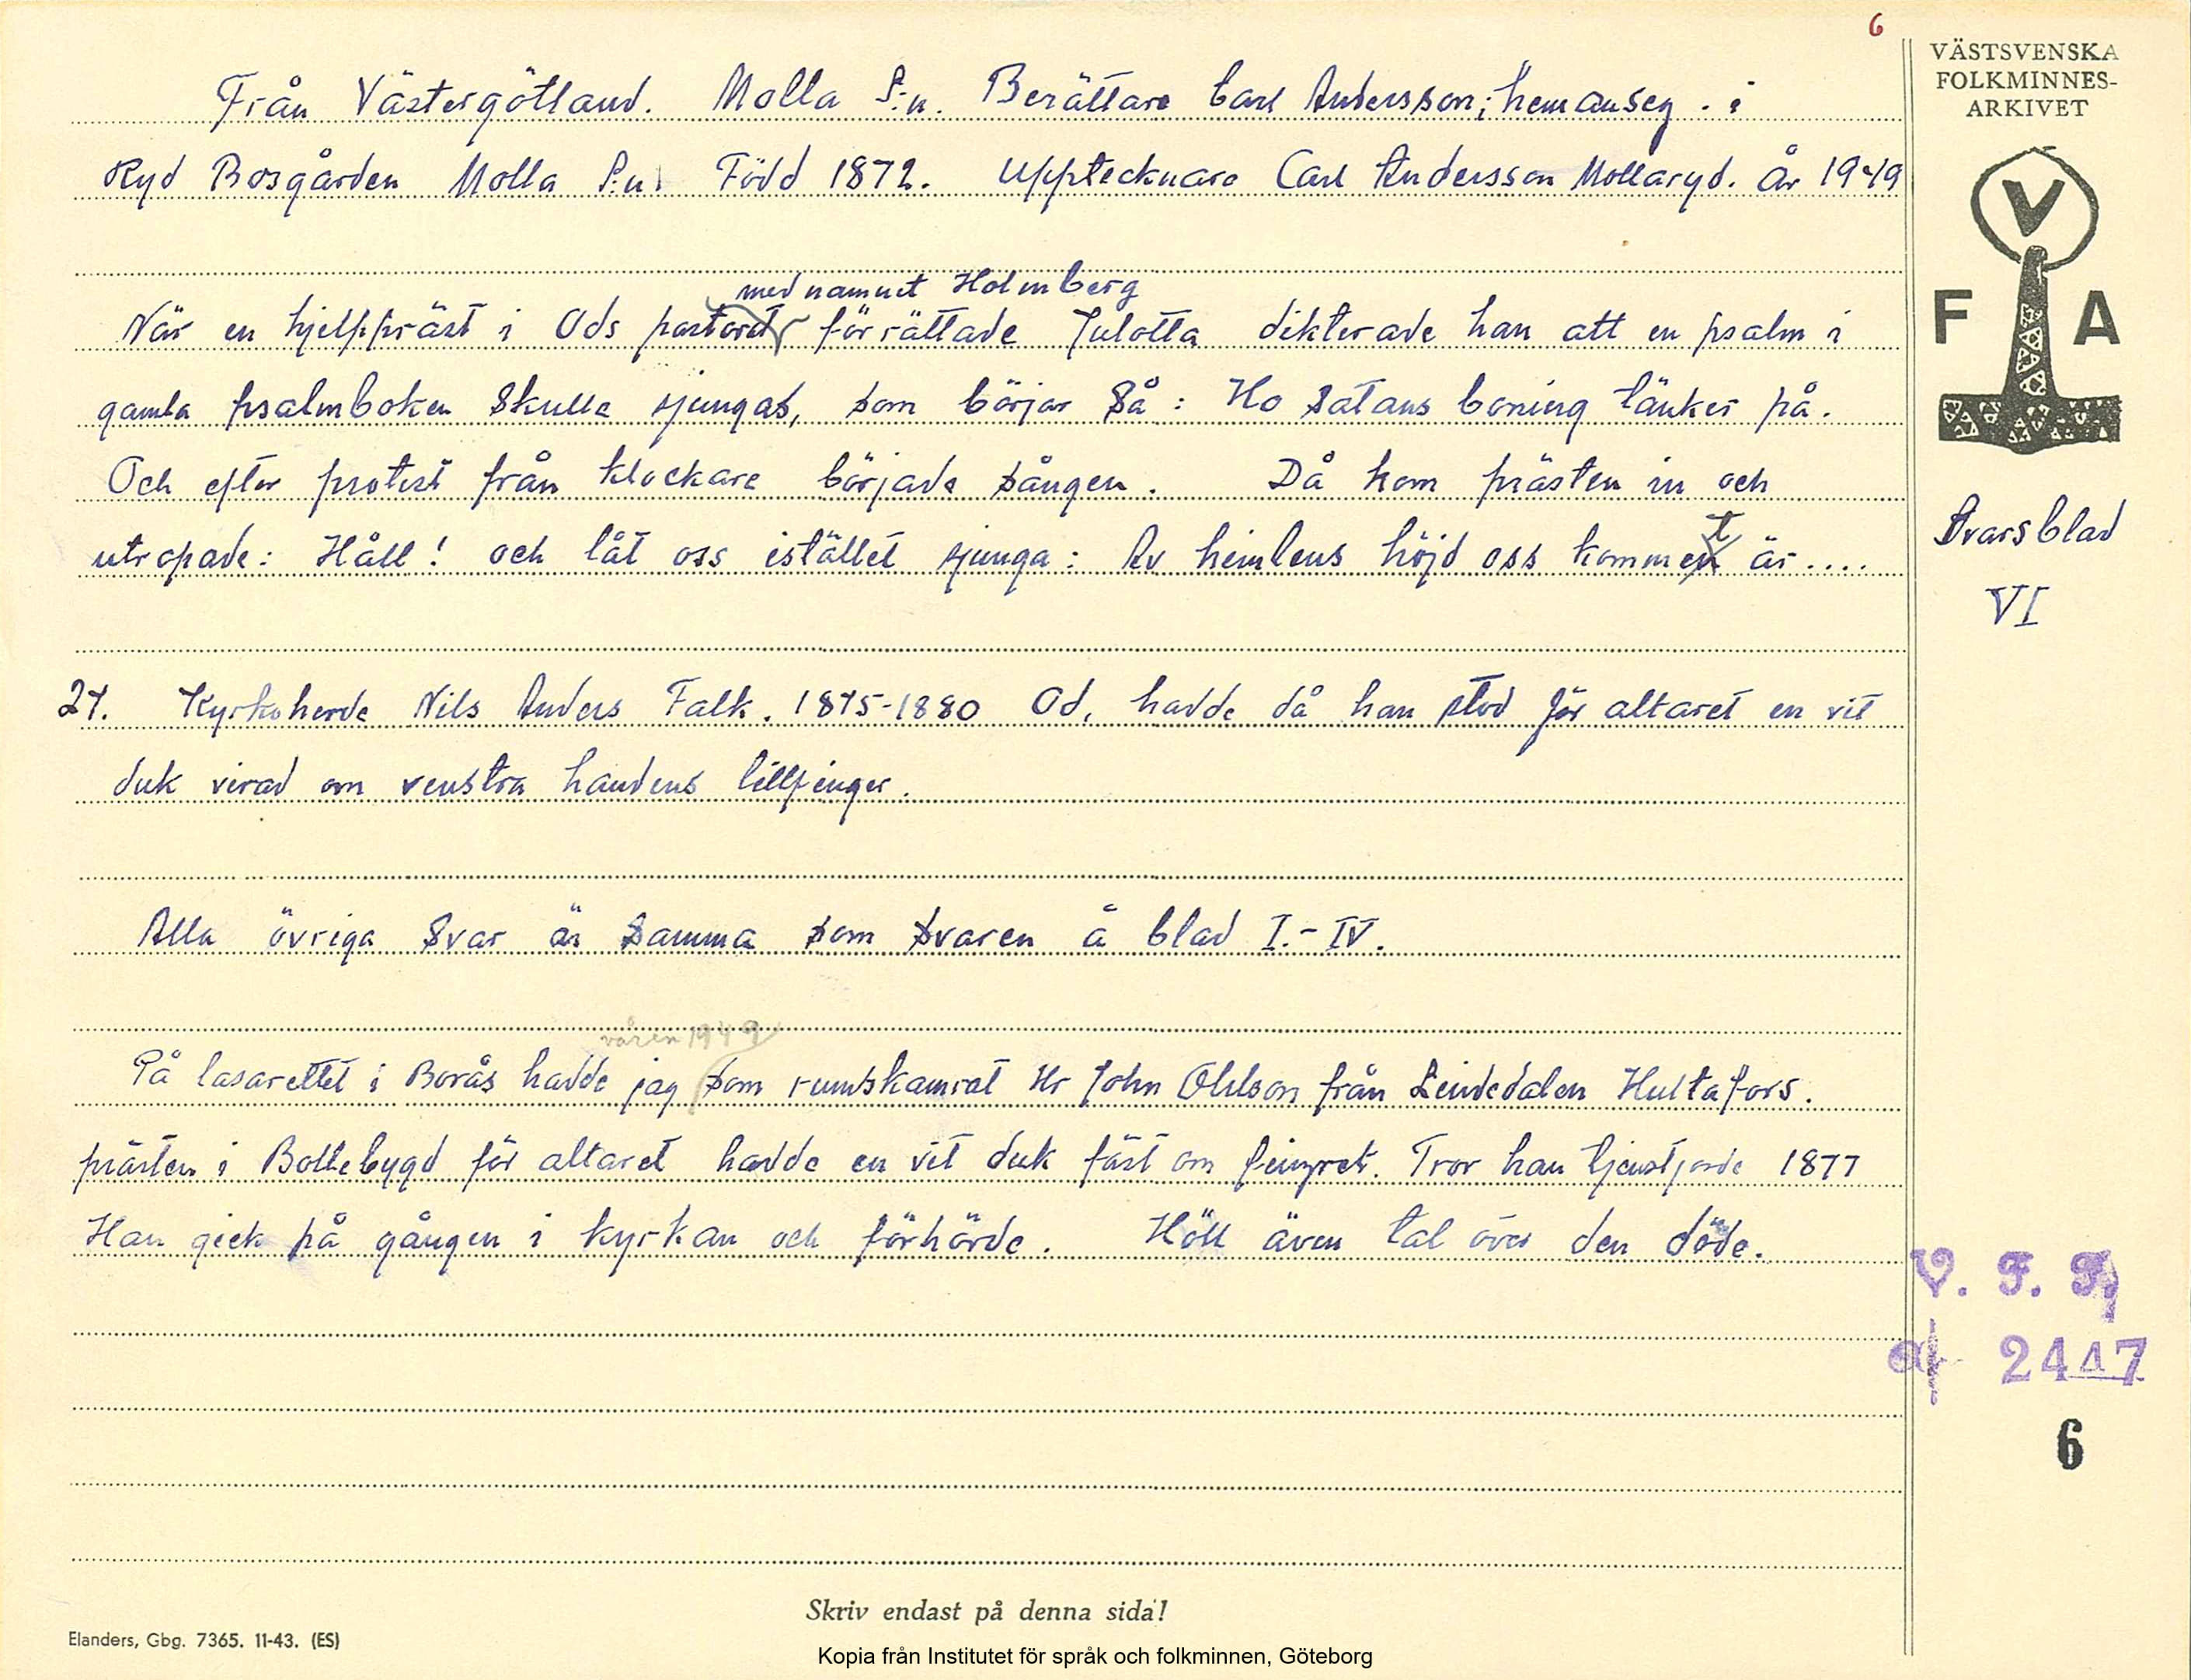 6
VÄSTSVENSKA
FOLKMINNES-
ARKIVET
Från Västergötland. Molla S:n. Berättare Carl Andersson; hemanseg. i
Ryd Bosgården Molla S:n. Född 1872. Upptecknare Carl Andersson Mollaryd. År 1949
V
F A
med namnet Holmberg
När en hjelppräst i Ods pastorat förrättade Julotta dikterade han att en psalm i
gamla psalmboken skulle sjungas, som börjar så: Ho satans boning tänker på.
Och efter protest från klockare började sången. Då kom prästen in och
utropade: Håll! och låt oss istället sjunga: Av himlens höjd oss kommet är....
Svarsblad
VI
27. Kyrkoherde Nils Anders Falk. 1875-1880 Od, hadde då han stod för altaret en vit
duk virad om venstra handens lillfinger.
Alla övriga svar är samma som svaren å blad I.-IV.
våren 1949
På lasarettet i Borås hadde jag som rumskamrat Hr John Ohlson från Lindedalen Hultafors.
prästen i Bollebygd för altaret hadde en vit duk fäst om fingret. Tror han tjenstjorde 1877
Han gick på gången i kyrkan och förhörde. Höll även tal över den döde.
V. F. F.
2447
6
Skriv endast på denna sida!
Elanders, Gbg. 7365. 11-43. (ES)
Kopia från Institutet för språk och folkminnen, Göteborg